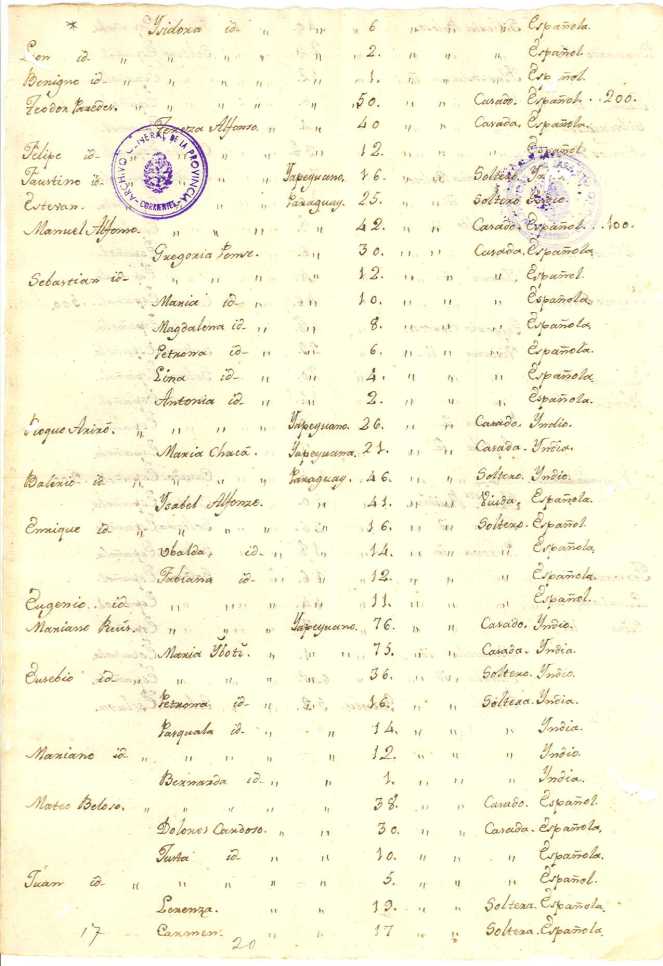 * Isidora id. " " 6 " " " Española.
Leon id. " " " " " 2. " " " Español.
Benigno id. " " " " " 1. " " " Español.
Teodor Paredes. " " " " " 50. " " Casado. Español. . . 200.
Tereza Alfonso. " " 40 " " Casada. Española.
Felipe id. 12. " " " Español
Faustino id. Yapeyuano. 16. " " Soltero. In
Estevan. Paraguay. 25. " " Soltero Indio.
Manuel Alfonso. " " " " " 42. " " Casado. Español. . . 100.
Gregoria Ponse. " " 30. " " Casada. Española
Sebastian id. " " " " " 12. " " " Español.
Maria id. " " 10. " " " Española.
Magdalena id. " " 8. " " " Española.
Petrona id. " " 6. " " " Española.
Lina id. " " 4. " " " Española.
Antonia id. " " 2. " " " Española.
Roque " " " " Yapeyuano. 26. " " Casado. Yndio.
Maria Yapeyuana. 21. " " Casada. Yndia.
id " " " " Paraguay. 46. " " Soltero. Yndio.
Ysabel Alfonze. " " 41. " " Viuda. Española.
Enrique id. " " " " " 16. " " Soltero. Español.
Ubalda, id. " " 14. " " " Española.
Fabiana id. " " 12. " " " Española.
Eugenio. id " " " " " 11. " " " Español.
Mariano " " " " Yapeyuano. 76. " " Casado. Yndio.
Maria " " " 75. " " Casada. Yndia.
Eusebio id. " " " " " 36. " " Soltero. Yndio.
Petrona id. " " 16. " " Soltera. Yndia.
Pasquala id. " " 14. " " " Yndia.
Mariano id. " " " " " 12. " " " Yndio.
Bernarda id. " " 1. " " " Yndia.
Mateo Beloso. " " " " " 38. " " Casado. Español.
Dolores Cardoso. " " 30. " " Casada. Española.
Justa id. " " 10. " " " Española.
Juan id. " " " " " 5. " " " Español.
Lorenza. " " 19. " " Soltera. Española.
17 Carmen. " " 17 " " Soltera. Española.
20
ARCHIVO GENERAL DE LA PROVINCIA
CORRIENTES